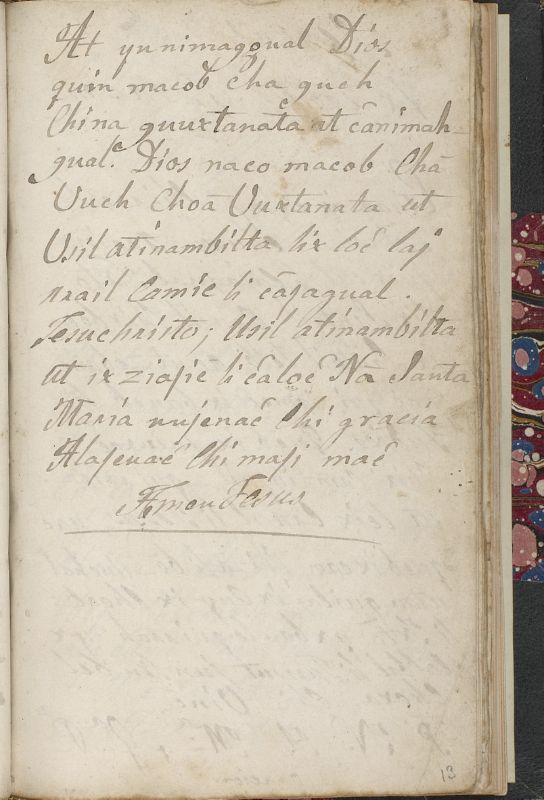 At yunimaggual Dios
quin macob cha quch
China quuxtanata ut cānimah
gual.e Dios naco macob Chā
Vuch Choā Vuxtanata ut
Usil atinambilta lix loē laj
rrail Camic li cājagual.
Jesuchristo; Usil atinambilta
ut ix ziajic li cāloē Nā Santa
María nujenaē Chi gracia
Majenaē Chi maji maē
Amen Jesus
13